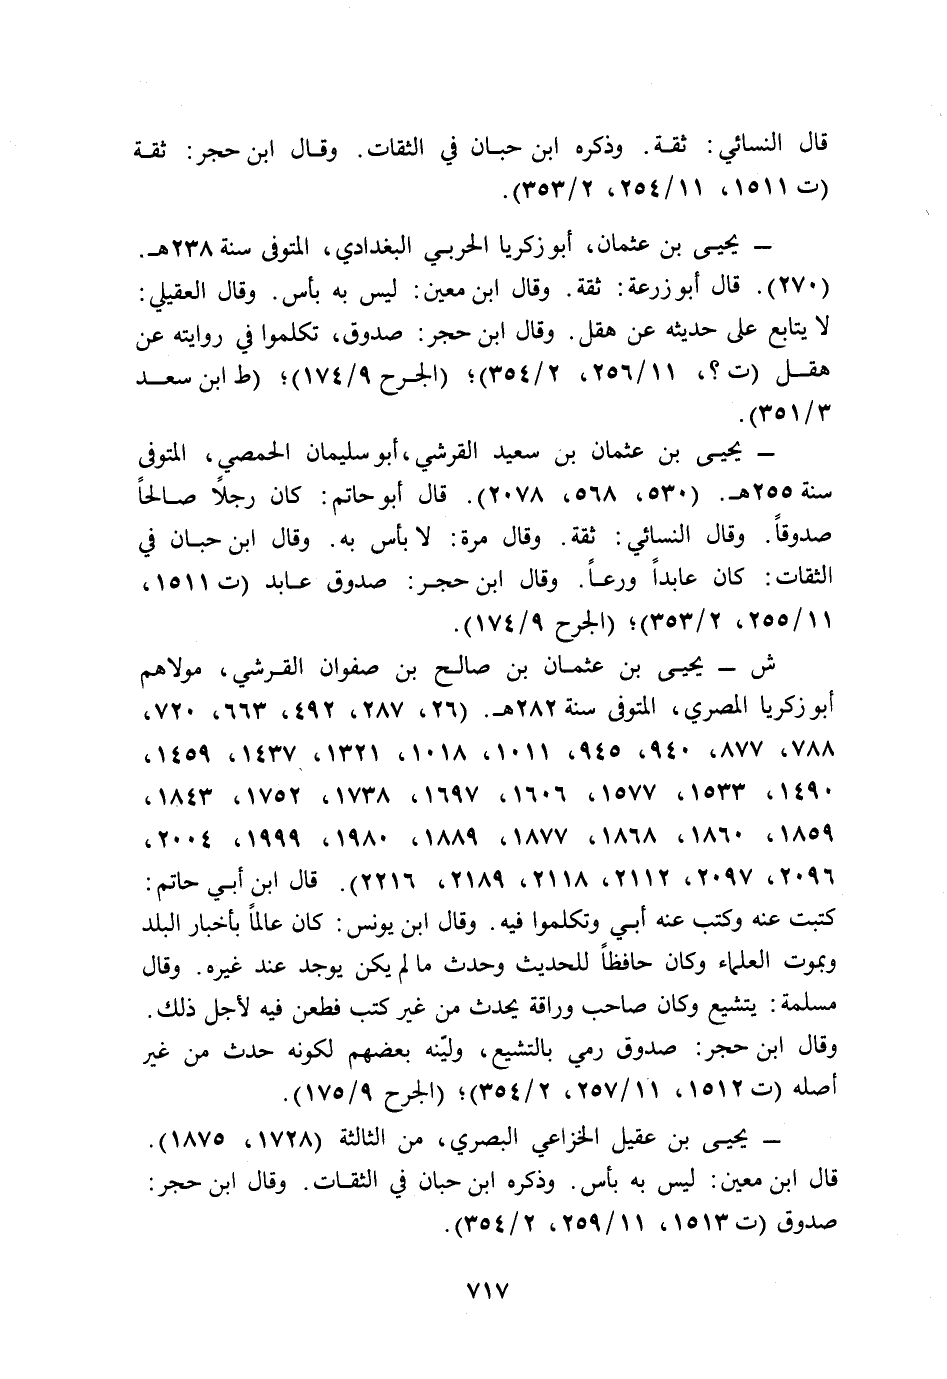 قال النسائي: ثقة. وذكره ابن حبان في الثقات. وقال ابن حجر: ثقة
(ت ١٥١١، ٢٥٤/١١، ٣٥٣/٢).
— يحيى بن عثمان، أبو زكريا الحربي البغدادي، المتوفى سنة ٢٣٨هـ.
(٢٧٠). قال أبو زرعة: ثقة. وقال ابن معين: ليس به بأس. وقال العقيلي:
لا يتابع على حديثه عن هقل. وقال ابن حجر: صدوق، تكلموا في روايته عن
هقل (ت ؟، ٢٥٦/١١، ٣٥٤/٢)؛ (الجرح ١٧٤/٩)؛ (ط ابن سعد
٣٥١/٣).
— يحيى بن عثمان بن سعيد القرشي، أبو سليمان الحمصي، المتوفى
سنة ٢٥٥هـ. (٥٣٠، ٥٦٨، ٢٠٧٨). قال أبو حاتم: كان رجلاً صالحاً
صدوقاً. وقال النسائي: ثقة. وقال مرة: لا بأس به. وقال ابن حبان في
الثقات: كان عابداً ورعاً. وقال ابن حجر: صدوق عابد (ت ١٥١١،
٢٥٥/١١، ٣٥٣/٢)؛ (الجرح ١٧٤/٩).
ش — يحيى بن عثمان بن صالح بن صفوان القرشي، مولاهم
أبو زكريا المصري، المتوفى سنة ٢٨٢هـ. (٢٦، ٢٨٧، ٤٩٢، ٦٦٣، ٧٢٠،
٧٨٨، ٨٧٧، ٩٤٠، ٩٤٥، ١٠١١، ١٠١٨، ١٣٢١، ١٤٣٧، ١٤٥٩،
١٤٩٠، ١٥٣٣، ١٥٧٧، ١٦٠٦، ١٦٩٧، ١٧٣٨، ١٧٥٢، ١٨٤٣،
١٨٥٩، ١٨٦٠، ١٨٦٨، ١٨٧٧، ١٨٨٩، ١٩٨٠، ١٩٩٩، ٢٠٠٤،
٢٠٩٦، ٢٠٩٧، ٢١١٢، ٢١١٨، ٢١٨٩، ٢٢١٦). قال ابن أبي حاتم:
كتبت عنه وكتب عنه أبي وتكلموا فيه. وقال ابن يونس: كان عالماً بأخبار البلد
وبموت العلماء وكان حافظاً للحديث وحدث ما لم يكن يوجد عند غيره. وقال
مسلمة: يتشيع وكان صاحب وراقة يحدث من غير كتب فطعن فيه لأجل ذلك.
وقال ابن حجر: صدوق رمي بالتشيع، وليّنه بعضهم لكونه حدث من غير
أصله (ت ١٥١٢، ٢٥٧/١١، ٣٥٤/٢)؛ (الجرح ١٧٥/٩).
— يحيى بن عقيل الخزاعي البصري، من الثالثة (١٧٢٨، ١٨٧٥).
قال ابن معين: ليس به بأس. وذكره ابن حبان في الثقات. وقال ابن حجر:
صدوق (ت ١٥١٣، ٢٥٩/١١، ٣٥٤/٢).
٧١٧